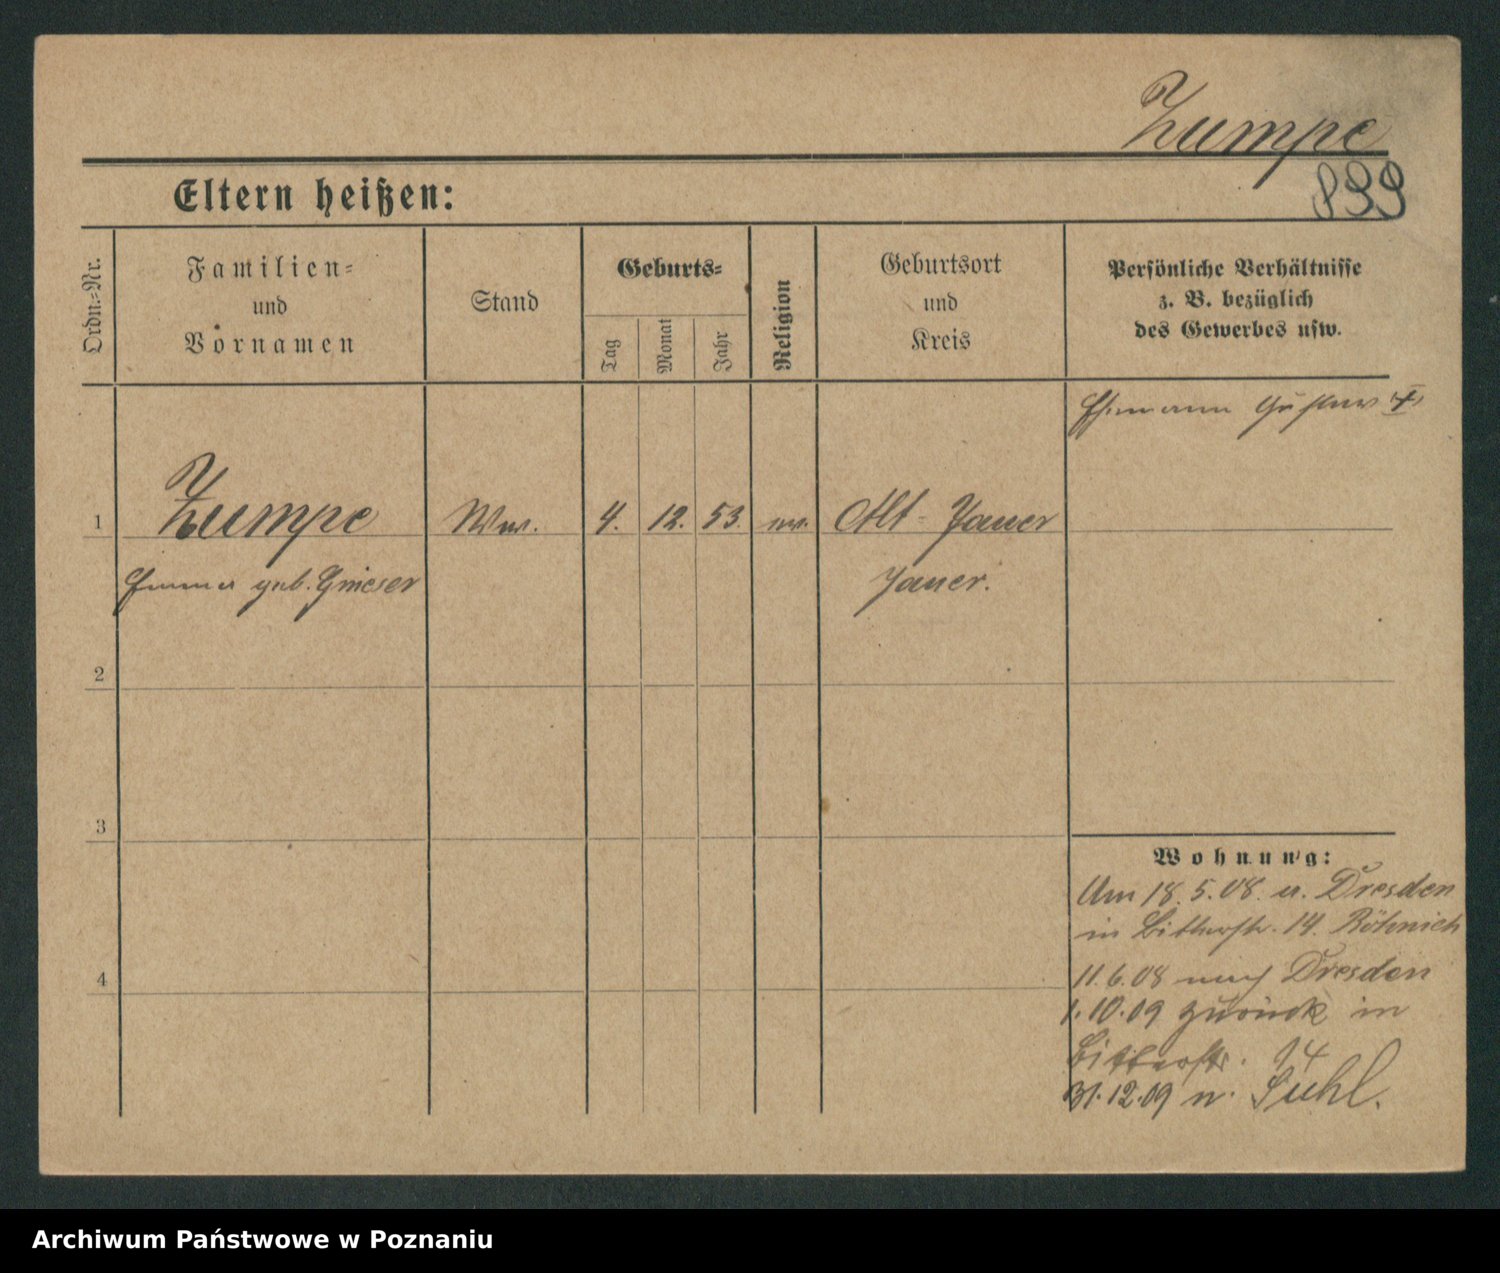 Zumpe
899
Eltern heißen:
Ordn.-Nr.
Familien-
und
Vornamen
Stand
Geburts-
Tag
Monat
Jahr
Religion
Geburtsort
und
Kreis
Persönliche Verhältnisse
z. B. bezüglich
des Gewerbes usw.
Ehemann Gustav †
1
Zumpe
Ww.
4.
12.
53.
ev.
Alt-Jauer
Emma geb. Gnieser
Jauer.
2
3
4
Wohnung:
Am 18.5.08. a. Dresden
in Bitterstr. 14. Röhnich
11.6.08 nach Dresden
1.10.09 zurück in
Bitterstr. 14
31.12.09 n. Suhl.
Archiwum Państwowe w Poznaniu